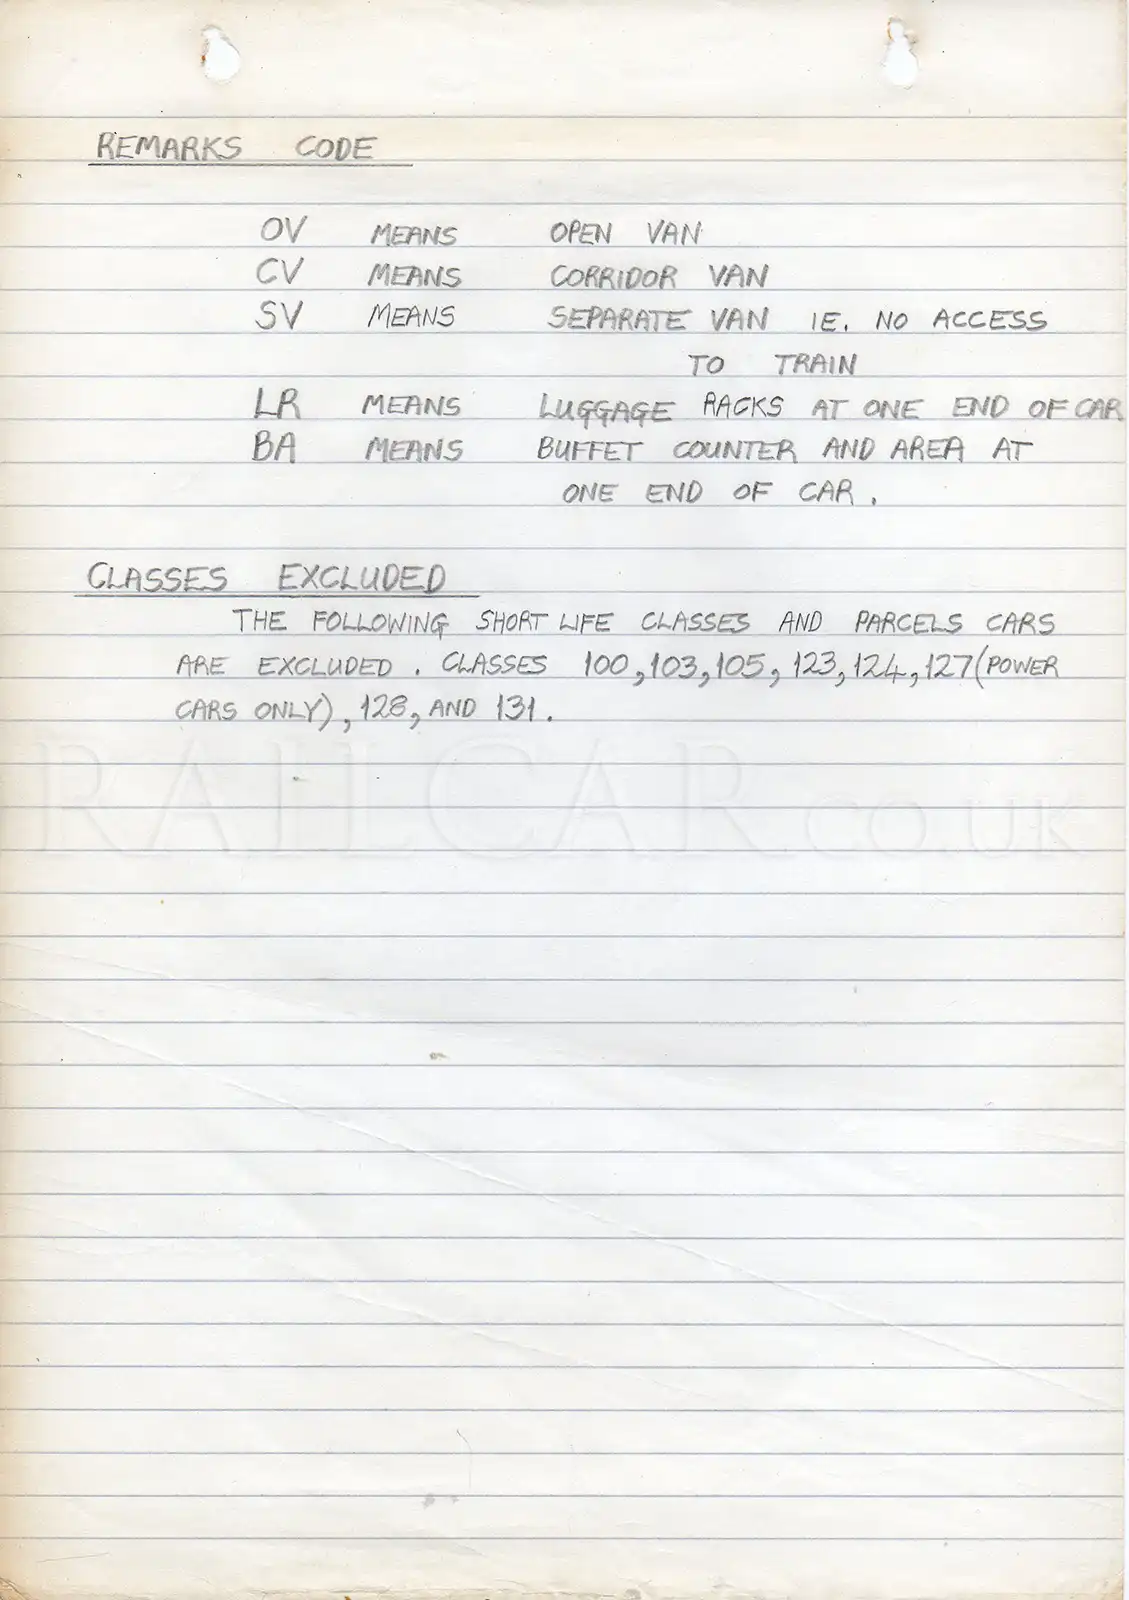 REMARKS CODE
OV MEANS OPEN VAN
CV MEANS CORRIDOR VAN
SV MEANS SEPARATE VAN IE. NO ACCESS
TO TRAIN
LR MEANS LUGGAGE RACKS AT ONE END OF CAR
BA MEANS BUFFET COUNTER AND AREA AT
ONE END OF CAR.
CLASSES EXCLUDED
THE FOLLOWING SHORT LIFE CLASSES AND PARCELS CARS
ARE EXCLUDED. CLASSES 100, 103, 105, 123, 124, 127 (POWER
CARS ONLY), 128, AND 131.
RAILCAR.CO.UK